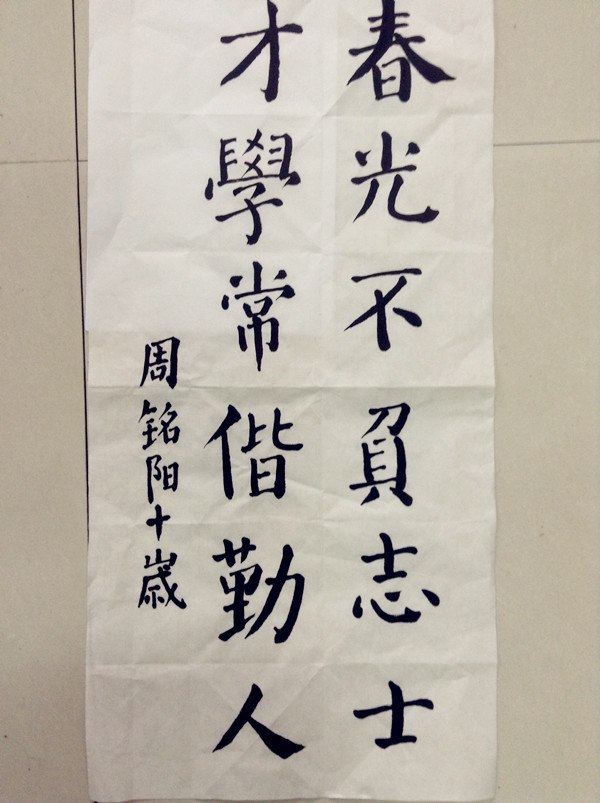 春光不負志士
才學常偕勤人
周銘阳十歳